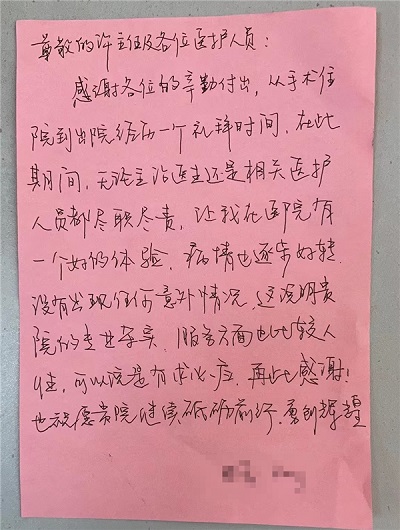 尊敬的许主任及各位医护人员：
感谢各位的辛勤付出，从手术住
院到出院经历一个礼拜时间，在此
期间，无论主治医生还是相关医护
人员都尽职尽责，让我在医院有
一个好的体验，病情也逐步好转，
没有出现任何意外情况，这说明贵
院的专业夯实，服务方面也比较人
性，可以说是有求必应，再此感谢！
也祝愿贵院继续砥砺前行，勇创辉煌